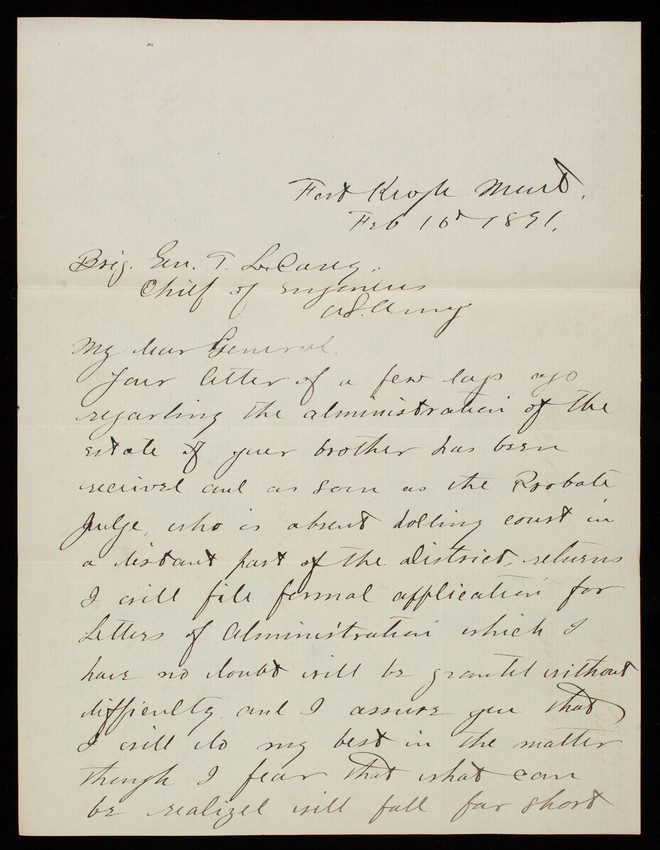 Fort Keogh Mont.
Feb 10th 1891.
Brig. Gen. T. L. Casey.
Chief of Engineers
U.S. Army
My dear General
Your letter of a few days ago
regarding the administration of the
estate of your brother has been
received and as soon as the Probate
Judge, who is absent holding court in
a distant part of the district, returns
I will file formal application for
Letters of Administration which I
have no doubt will be granted without
difficulty and I assure you that
I will do my best in the matter
though I fear that what can
be realized will fall far short